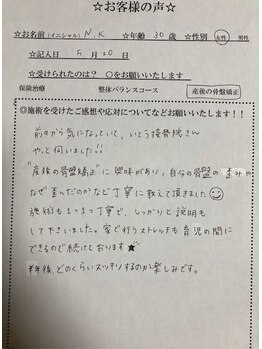 ☆お客様の声☆
☆お名前(イニシャル) N.K ☆年齢 30歳 ☆性別 女性 男性
☆記入日 5月20日
☆受けられたのは? ○をお願いいたします
保険治療 整体バランスコース 産後の骨盤矯正
◎施術を受けたご感想や応対についてなどお願いします!!
前々から気になっていて、いとう接骨院さん
やっと伺いました!!
"産後の骨盤矯正"に興味があり、自分の骨盤の歪みや
なぜ歪んだのかなど丁寧に教えて頂きました
施術も1つ1つ丁寧で、しっかりと説明も
して下さいました。家で行うストレッチも育児の間に
できるので続けております★
半年後、どのくらいスッキリするのか楽しみです。